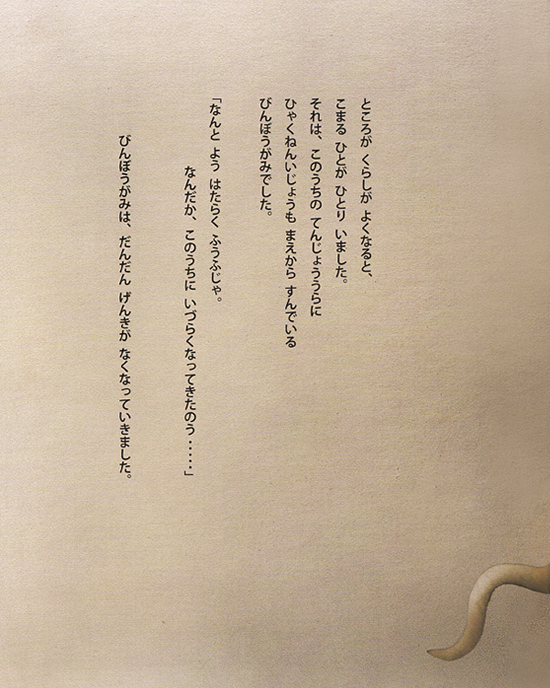 ところが くらしが よくなると、
こまる ひとが ひとり いました。
それは、このうちの てんじょううらに
ひゃくねんいじょうも まえから すんでいる
びんぼうがみでした。
「なんと よう はたらく ふうふじゃ。
なんだか、このうちに いづらくなってきたのう・・・・・」
びんぼうがみは、だんだん げんきが なくなっていきました。